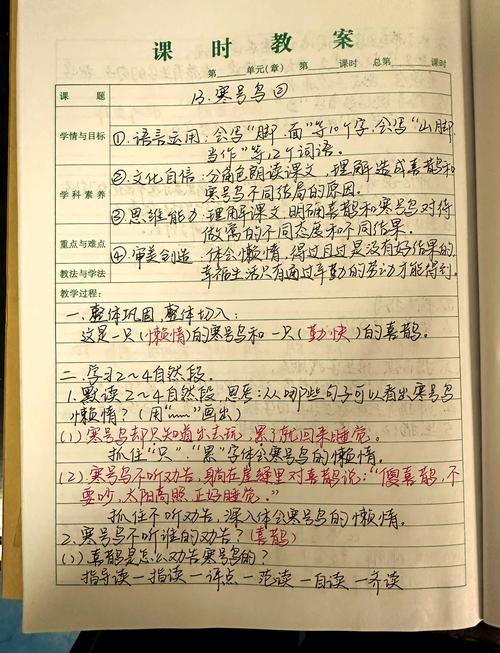 课 时 教 案
第 单元(章) 第 课时 总第 课时
课 题
13.寒号鸟②
学情与目标
①语言运用:会写“脚、面”等10个字,会写“山脚、
当作”等12个词语。
学科素养
②文化自信:分角色朗读课文,理解造成喜鹊和
寒号鸟不同结局的原因。
③思维能力:理解课文,明确喜鹊和寒号鸟对待
做窝的不同态度和不同结果。
重点与难点
④审美创造:体会懒惰、得过且过是没有好结果的,
幸福生活只有通过辛勤的劳动才能得到。
教法与学法
教学过程:
一、整体巩固,整体切入:
这是一只(懒惰)的寒号鸟和一只(勤快)的喜鹊。
二、学习2~4自然段。
1.默读2~4自然段,思考:从哪些句子可以看出寒号鸟
懒惰?(用“﹏”画出)
(1)寒号鸟却只知道出去玩,累了就回来睡觉。
抓住“只”、“累”字体会寒号鸟的懒惰。
(2)寒号鸟不听劝告,躺在崖缝里对喜鹊说:“傻喜鹊,不
要吵,太阳高照,正好睡觉。”
抓住不听劝告,深入体会寒号鸟的懒惰。
2.寒号鸟不听谁的劝告?(喜鹊)
(1)喜鹊是怎么劝告寒号鸟的?
指导读—指读—评点—范读—自读—齐读